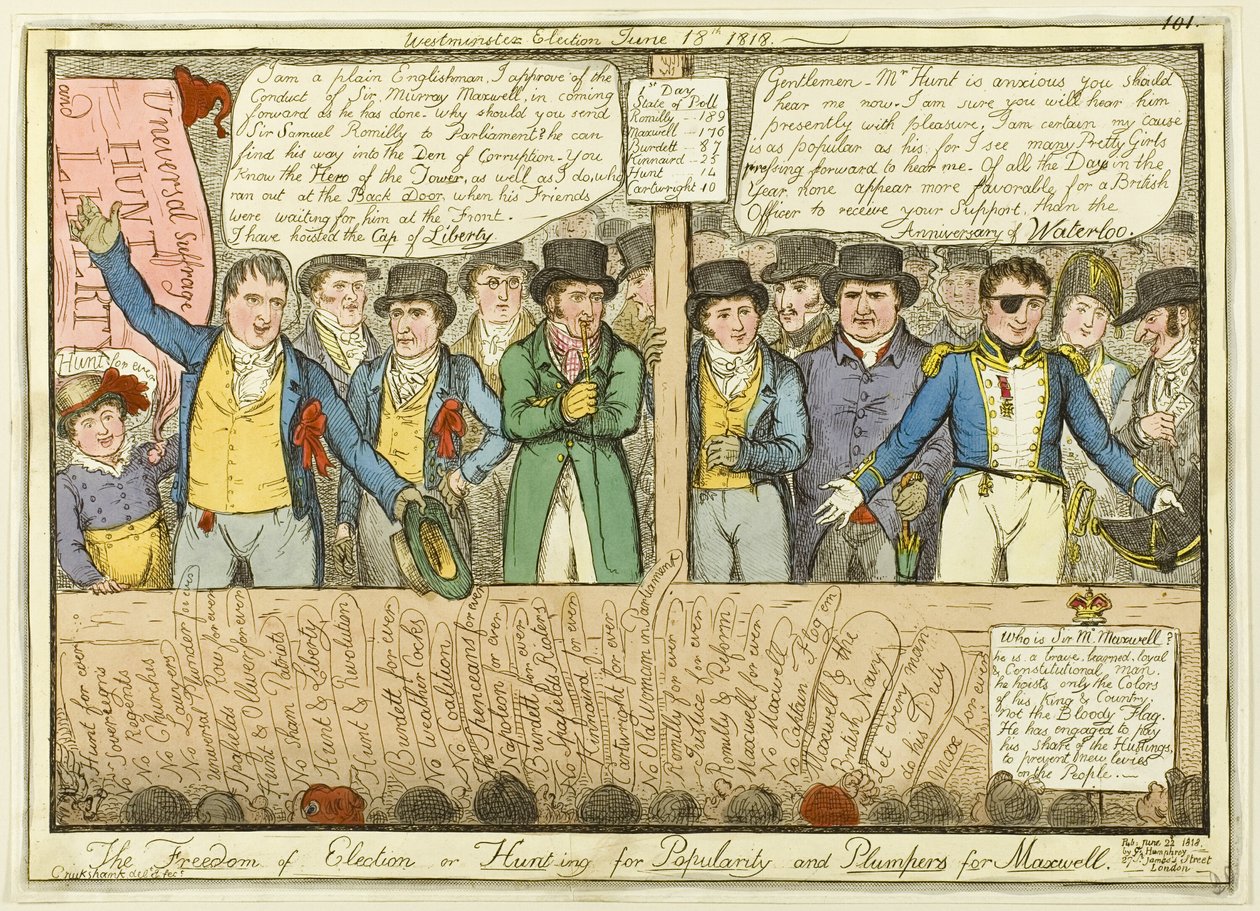 101.
Westminster Election June 18th 1818.
I am a plain Englishman, I approve of the
Conduct of Sir, Murray Maxwell, in coming
forward as he has done - why should you send
Sir Samuel Romilly to Parliament? he can
find his way into the Den of Corruption - You
know the Hero of the Tower, as well as I do, who
ran out at the Back Door, when his Friends
were waiting for him at the Front. -
I have hoisted the Cap of Liberty.
1st Day
State of Poll
Romilly - 189
Maxwell - 176
Burdett - 87
Kinnaird - 25
Hunt 14
Cartwright 10
Gentlemen - Mr Hunt is anxious you should
hear me now - I am sure you will hear him
presently with pleasure, I am certain my cause
is as popular as his, for I see many Pretty Girls
pressing forward to hear me - Of all the Days in the
Year none appear more favorable for a British
Officer to receive your Support, than the
Anniversary of Waterloo.
Universal Suffrage
HUNT
and
LIBERTY
Hunt for ever
Hunt for ever
No Sovereigns
No Regents
No Churches
No Lawyers
No Plunder for ever
Universal Row for ever
Spafields for ever
Hunt & Oliver for ever
No Sham Patriots
Hunt & Liberty
Hunt & Mullen
Burdett for ever
No Weather Cocks
No Coalition
The Spenceans for ever
Napoleon for ever
Burdett for ever
No Spafields Riders
Kinnaird for ever
Cartwright for ever
No Old Women in Parliament
Romilly for ever
Romilly & Reform
Maxwell for ever
No Maxwell
No Captain Flog em
Maxwell & the
British Navy
Let every man
do his Duty
Max for ever
Who is Sir M. Maxwell?
he is a brave, learned, loyal
& Constitutional man.
he hoists only the Colors
of his King & Country.
Not the Bloody Flag.
He has engaged to pay
his share of the Hustings,
to prevent new levies
on the People. -
The Freedom of Election or Hunt-ing for Popularity and Plumpers for Maxwell.
Cruikshank del. & fect
Pub. June 22 1818.
by G. Humphrey
27 St James's Street
London